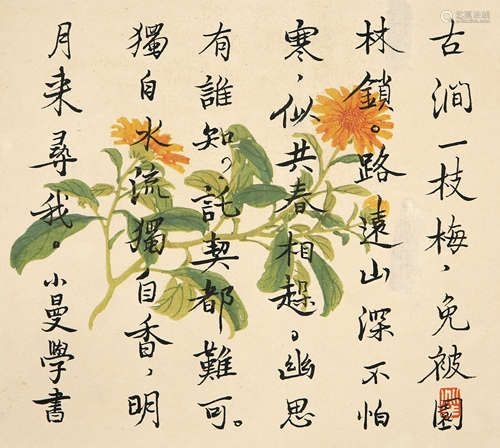 古澗一枝梅，免被園
林鎖。路遠山深不怕
寒，似共春相趓。幽思
有誰知。託契都難可。
獨自水流獨自香，明
月来尋我。小曼學書